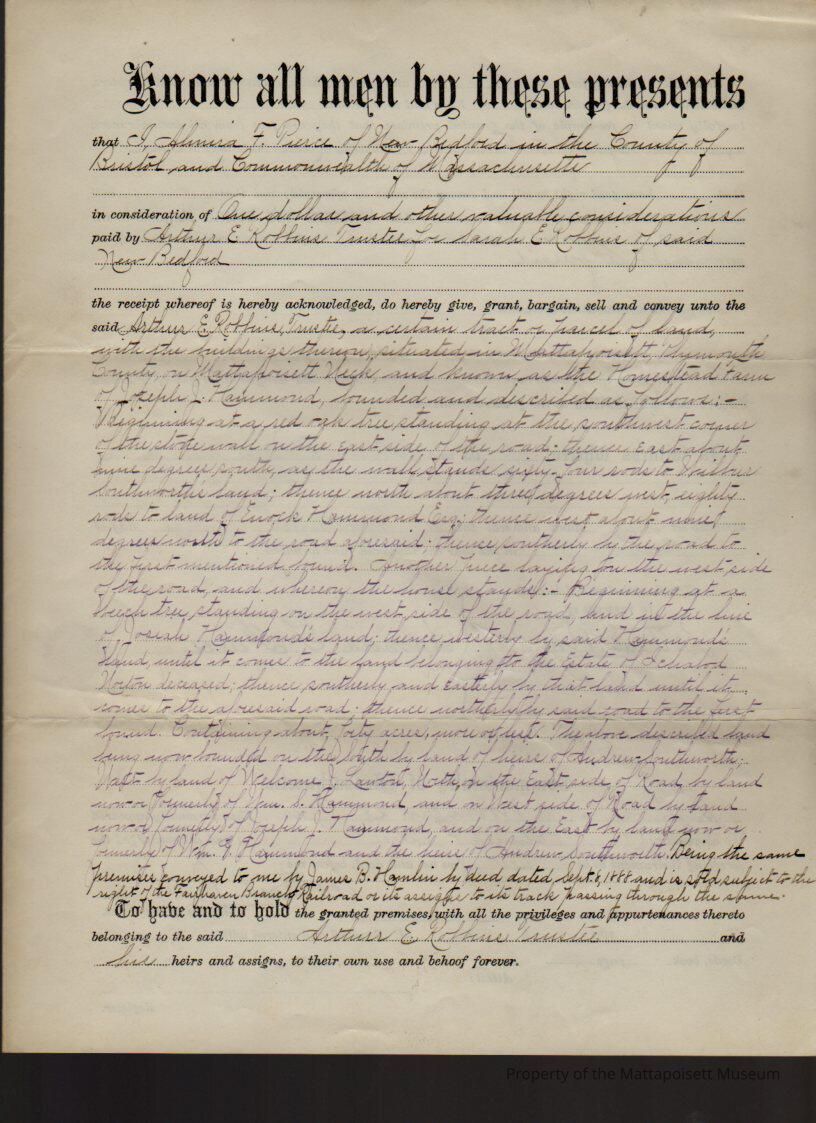 Know all men by these presents
that I, Almira F. Pierce of New Bedford in the County of
Bristol and Commonwealth of Massachusetts
in consideration of One dollar and other valuable considerations
paid by Arthur E Robbins Trustee for Sarah E Robbins of said
New Bedford
the receipt whereof is hereby acknowledged, do hereby give, grant, bargain, sell and convey unto the
said Arthur E. Robbins, Trustee, a certain tract or parcel of land,
with the buildings thereon, situated in Mattapoisett, Plymouth
County, on Mattapoisett Neck and known as the Homestead Farm
of Joseph J. Hammond, bounded and described as follows:-
Beginning at a red oak tree standing at the southwest corner
of the stone wall on the East side of the road; thence East about
nine degrees south, as the wall stands sixty-four rods to Wilbur
Southworth's land; thence north about three degrees west eighty
rods to land of Enock Hammond Esq; thence west about nine
degrees north to the road aforesaid; thence southerly by the road to
the first mentioned bound. Another piece laying on the west side
of the road, and whereon the house stands:- Beginning at a
beech tree, standing on the west side of the road, and in the line
of Josiah Hammond's land; thence westerly by said Hammond's
land, until it comes to the land belonging to the Estate of Ichabod
Norton deceased; thence southerly and Easterly by that land until it
comes to the aforesaid road; thence northerly by said road to the first
bound. Containing about forty acres, more or less. The above described land
being now bounded on the South by land of heirs of Andrew Southworth;
West by land of Welcome J. Lawton, North, on the East side of Road, by land
now or formerly of Wm. S. Hammond, and on West side of Road by land
now or formerly of Joseph J. Hammond, and on the East by land now or
formerly of Wm. Hammond and the heirs of Andrew Southworth. Being the same
premises conveyed to me by James B. Hamlin by deed dated Sept. 8, 1888 and is sold subject to the
right of the Fairhaven Branch Railroad or its assigns to its track passing through the same.
To have and to hold the granted premises, with all the privileges and appurtenances thereto
belonging to the said Arthur E. Robbins Trustee and
his heirs and assigns, to their own use and behoof forever.
Property of the Mattapoisett Museum